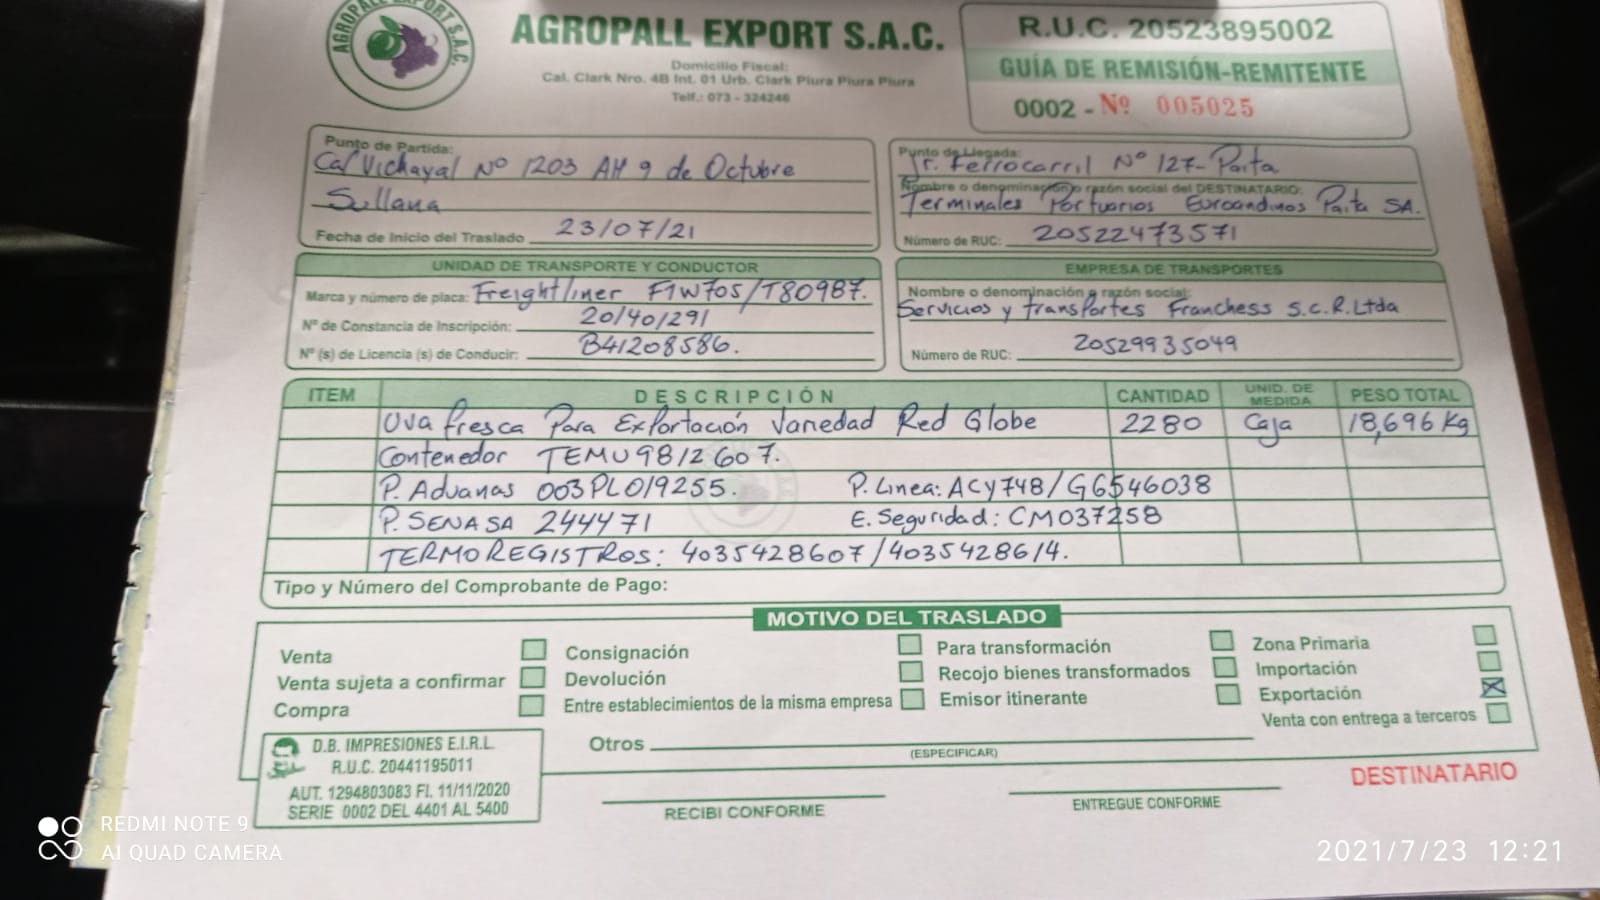 AGROPALL EXPORT S.A.C.
AGROPALL EXPORT S.A.C.
Domicilio Fiscal:
Cal. Clark Nro. 4B Int. 01 Urb. Clark Piura Piura Piura
Telf.: 073 - 324246
R.U.C. 20523895002
GUÍA DE REMISIÓN-REMITENTE
0002 - Nº 005025
Punto de Partida:
Cal Vichayal Nº 1203 AH 9 de Octubre
Sullana
Fecha de Inicio del Traslado 23/07/21
Punto de Llegada:
Jr. Ferrocarril Nº 127- Paita
Nombre o denominación o razón social del DESTINATARIO:
Terminales Portuarios Euroandinos Paita SA.
Número de RUC: 20522473571
UNIDAD DE TRANSPORTE Y CONDUCTOR
Marca y número de placa: Freightliner F1W705/T80987.
Nº de Constancia de Inscripción: 20/40/291
Nº (s) de Licencia (s) de Conducir: B41208586.
EMPRESA DE TRANSPORTES
Nombre o denominación o razón social:
Servicios y transportes Franchess S.C.R.Ltda
Número de RUC: 20529935049
ITEM DESCRIPCIÓN CANTIDAD UNID. DE MEDIDA PESO TOTAL
Uva fresca Para Exportación Variedad Red Globe 2280 Caja 18,696 Kg
Contenedor TEMU9812607.
P. Aduanas 003PL019255. P. Linea: ACY748/GG546038
P. SENASA 244471 E. Seguridad: CM037258
TERMOREGISTROS: 4035428607/4035428614.
Tipo y Número del Comprobante de Pago:
MOTIVO DEL TRASLADO
Venta
Venta sujeta a confirmar
Compra
Consignación
Devolución
Entre establecimientos de la misma empresa
Para transformación
Recojo bienes transformados
Emisor itinerante
Zona Primaria
Importación
Exportación
Venta con entrega a terceros
Otros
(ESPECIFICAR)
D.B. IMPRESIONES E.I.R.L.
R.U.C. 20441195011
AUT. 1294803083 FI. 11/11/2020
SERIE 0002 DEL 4401 AL 5400
RECIBI CONFORME
ENTREGUE CONFORME
DESTINATARIO
REDMI NOTE 9
AI QUAD CAMERA
2021/7/23 12:21